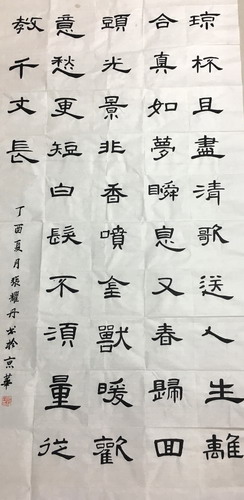 琼杯且盡清歌送人生離
合真如夢瞬息又春歸回
頭光景非香噴金獸暖歡
意愁更短白髮不須量從
教千丈長
丁酉夏月張耀丹书於京華